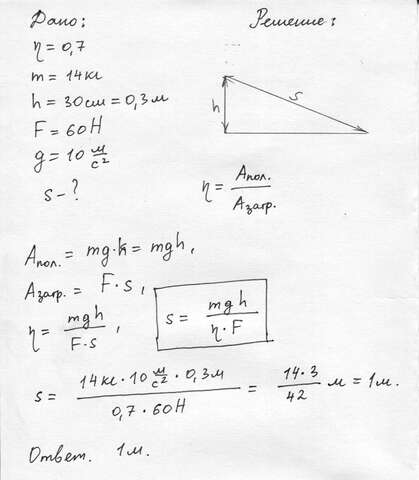 Дано: Решение:
η = 0,7
m = 14кг
h = 30см = 0,3м
F = 60Н
g = 10 м/с²
s - ?
h
s
η = Aпол. / Aзатр.
Aпол. = mg·h = mgh,
Aзатр. = F·s,
η = mgh / F·s, s = mgh / η·F
s = 14кг·10 м/с²·0,3м / 0,7·60Н = 14·3 / 42 м = 1м.
Ответ. 1м.